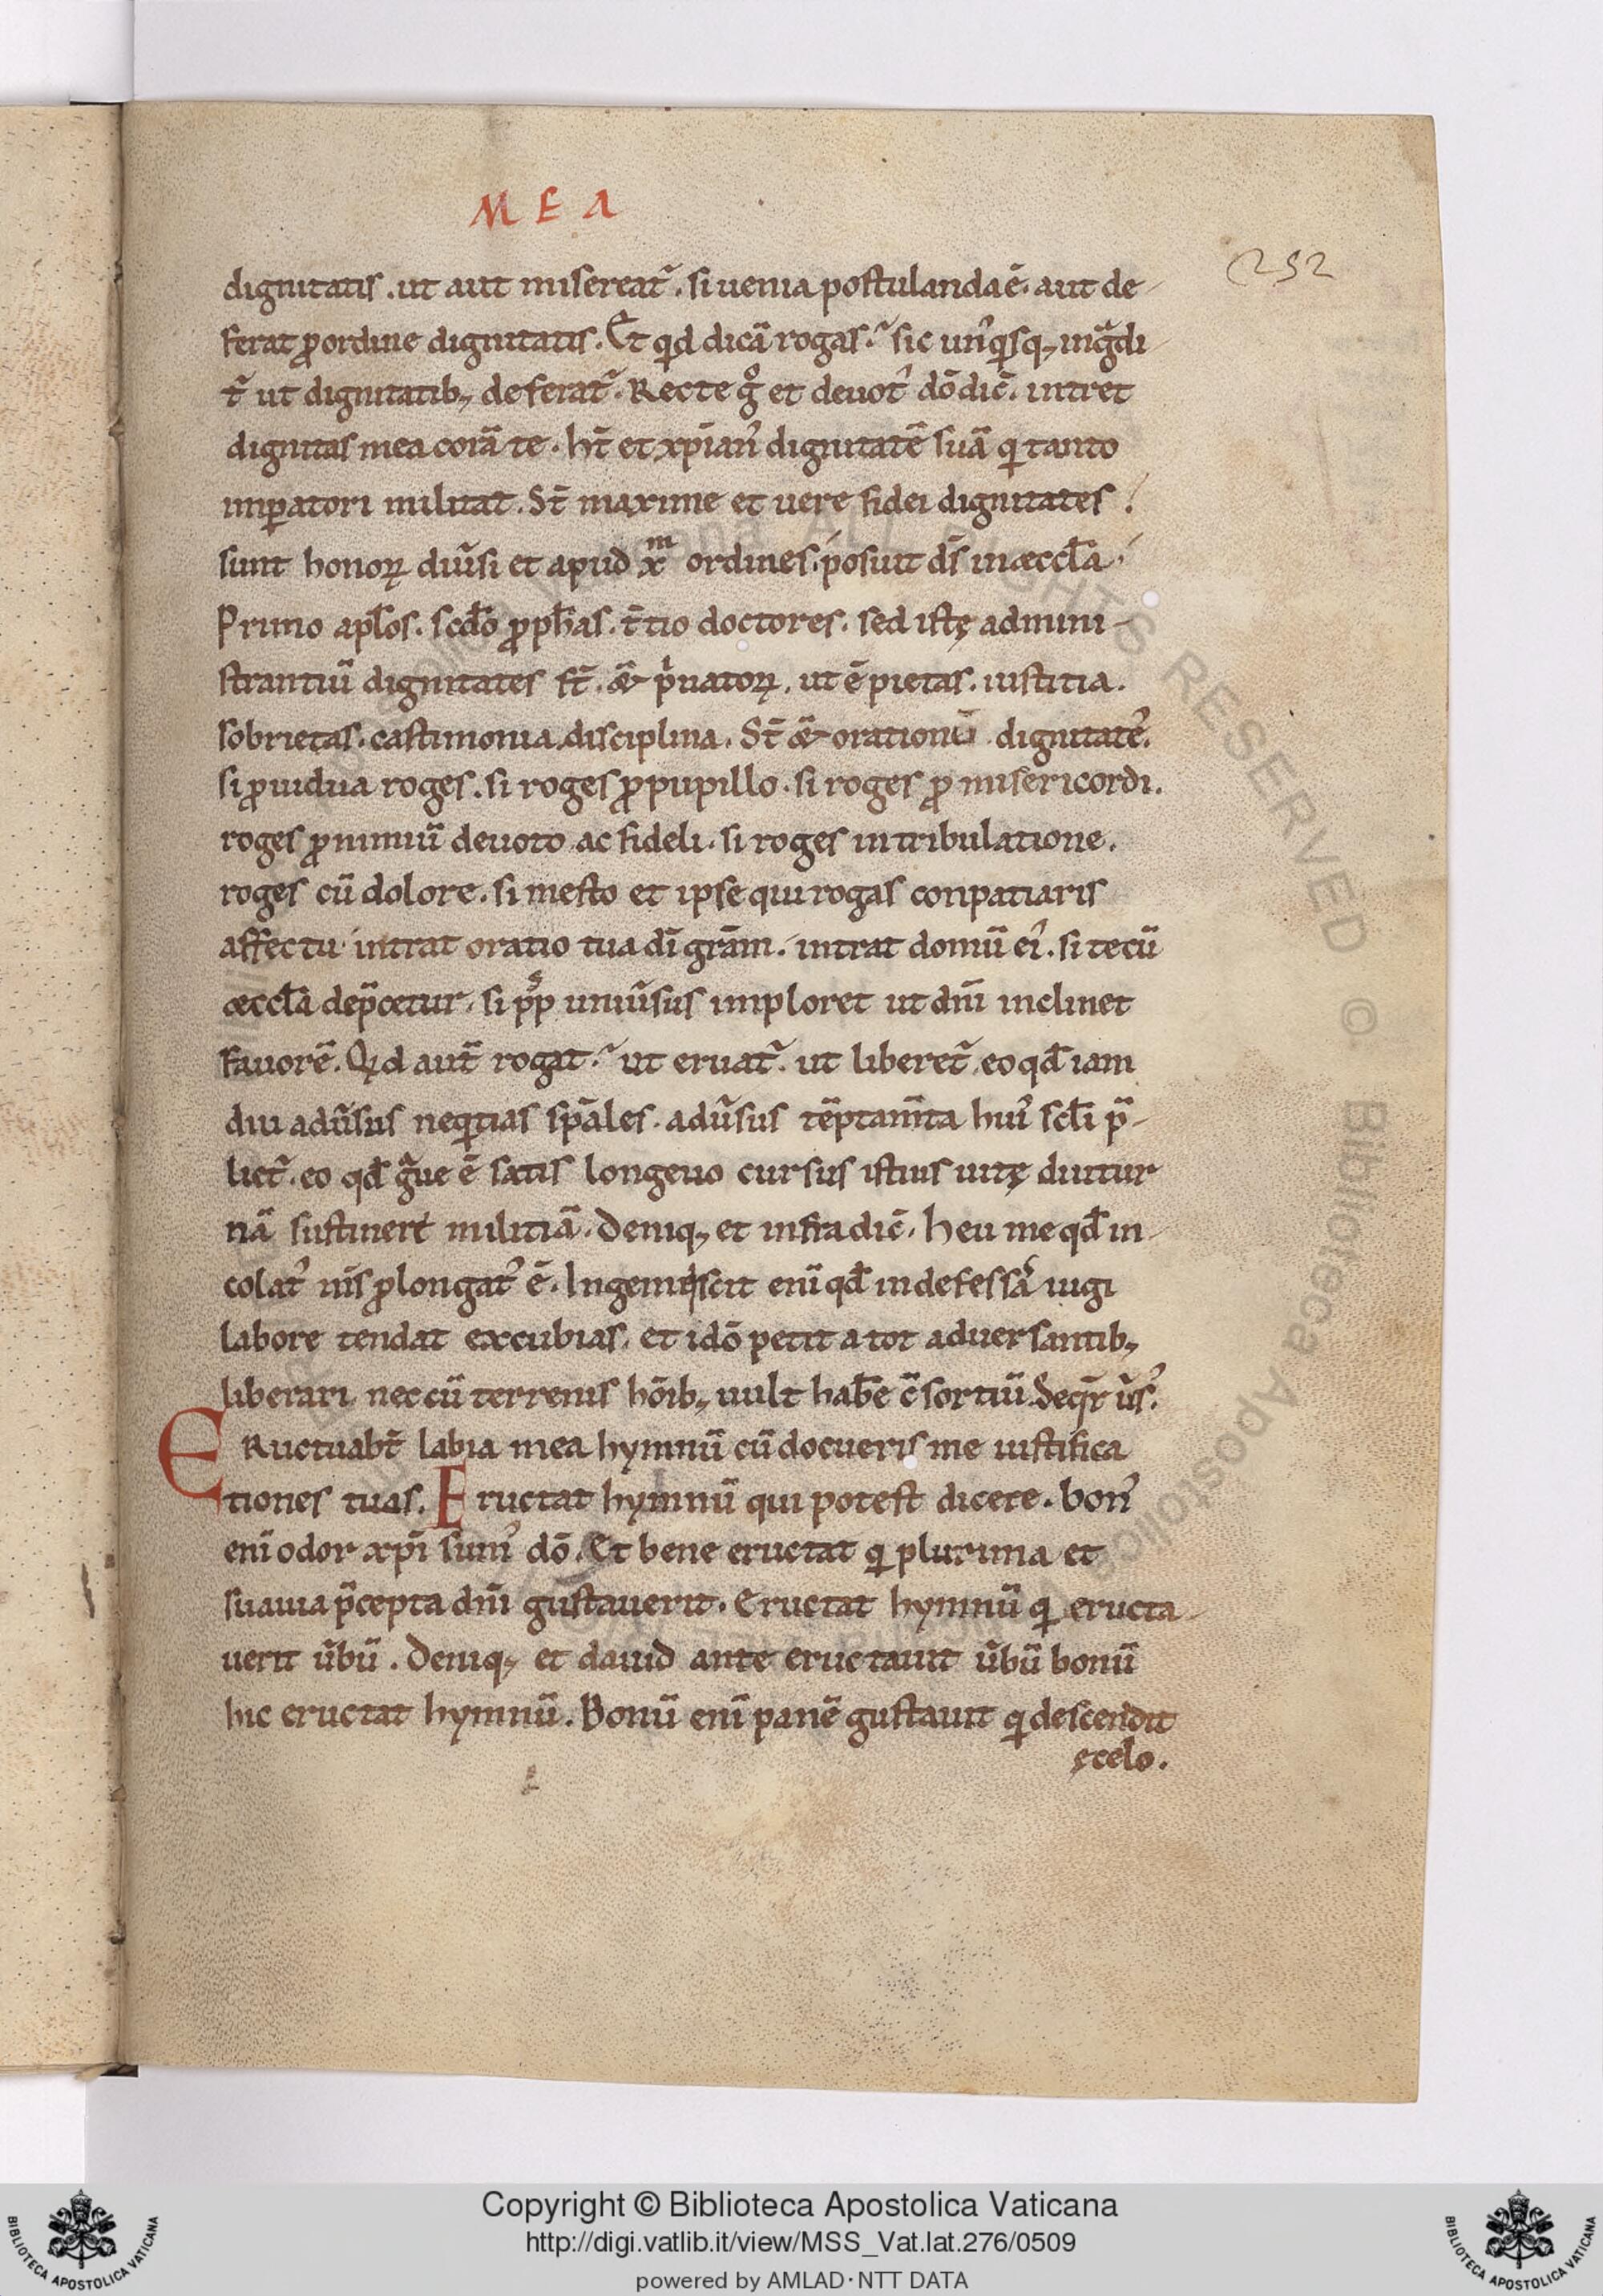 M E A
252
dignitatis . ut aut misereat᷑ . si uenia postulanda ē . aut de-
ferat ꝓ ordine dignitatis . Et qͥd dicā rogas .᷑ sic unꝰqͥsq; ingͣdi-
t᷑ ut dignitatib; deferat᷑ . Recte gͦ et deuotꝰ dō dic̄ . intret
dignitas mea corā te . ht̄ et xp̄ianꝰ dignitatē suā qͥ tanto
imꝑatori militat . St̄ maxime et uere fidei dignitates .
sunt honoꝝ diũsi et apud xͫ ordines . posuit ds̄ in æccl̄a .
Primo apl̄os . scd̄o ꝓph̄as . t̄tio doctores . sed istę admini-
strantiū dignitates st̄ . & pͥuatoꝝ . ut ē pietas . iustitia .
sobrietas . castimonia . disciplina . St̄ & orationū dignitatēꝰ .
si ꝓ uidua roges . si roges ꝓ pupillo . si roges ꝓ misericordi .
roges ꝓ nimiū deuoto ac fideli . si roges in tribulatione .
roges cū dolore . si mesto et ipse qui rogas conpatiaris
affectu intrat oratio tua dī grām . intrat domū eiꝰ . si tecū
æccl̄a dep̄cetur . si pp̄ uniũsus imploret ut dn̄i inclinet
fauorē . Qͥd aut̄ rogat .᷑ ut eruat᷑ . ut liberet᷑ . eo qd̄ iam
diu adũsus neqͥtias sp̄ales . adũsus tēptam̄ta huiꝰ scl̄i p̄-
liet᷑ . eo qd̄ gͣue ē satis longeuo cursus istius uitę diutur
nā sustinere militiā . Deniq; et infra dic̄ . heu me qd̄ in-
colatꝰ m̄s ꝓlongatꝰ ē . Ingemiscit enī qd̄ indefessa iugi
labore tendat excubias . et idō petit a tot aduersantib;
liberari nec cū terrenis hōib; uult hab̄e c̄sortiū . Seqr̄ ũsꝰ .
ERuctuabt̄ labia mea hymnū cū docueris me iustifica
tiones tuas . Eructat hymnū qui potest dicere . bonꝰ
enī odor xp̄i sumꝰ dō . Et bene eructat qͥ plurima et
suauia p̄cepta dn̄i gustauerit . Eructat hymnū qͥ eructa-
uerit ũbū . Deniq; et dauid ante eructauit ũbū bonū
hic eructat hymnū . Bonū enī panē gustauit qͥ descendit
ę celo .
Copyright © Biblioteca Apostolica Vaticana
http://digi.vatlib.it/view/MSS_Vat.lat.276/0509
powered by AMLAD·NTT DATA